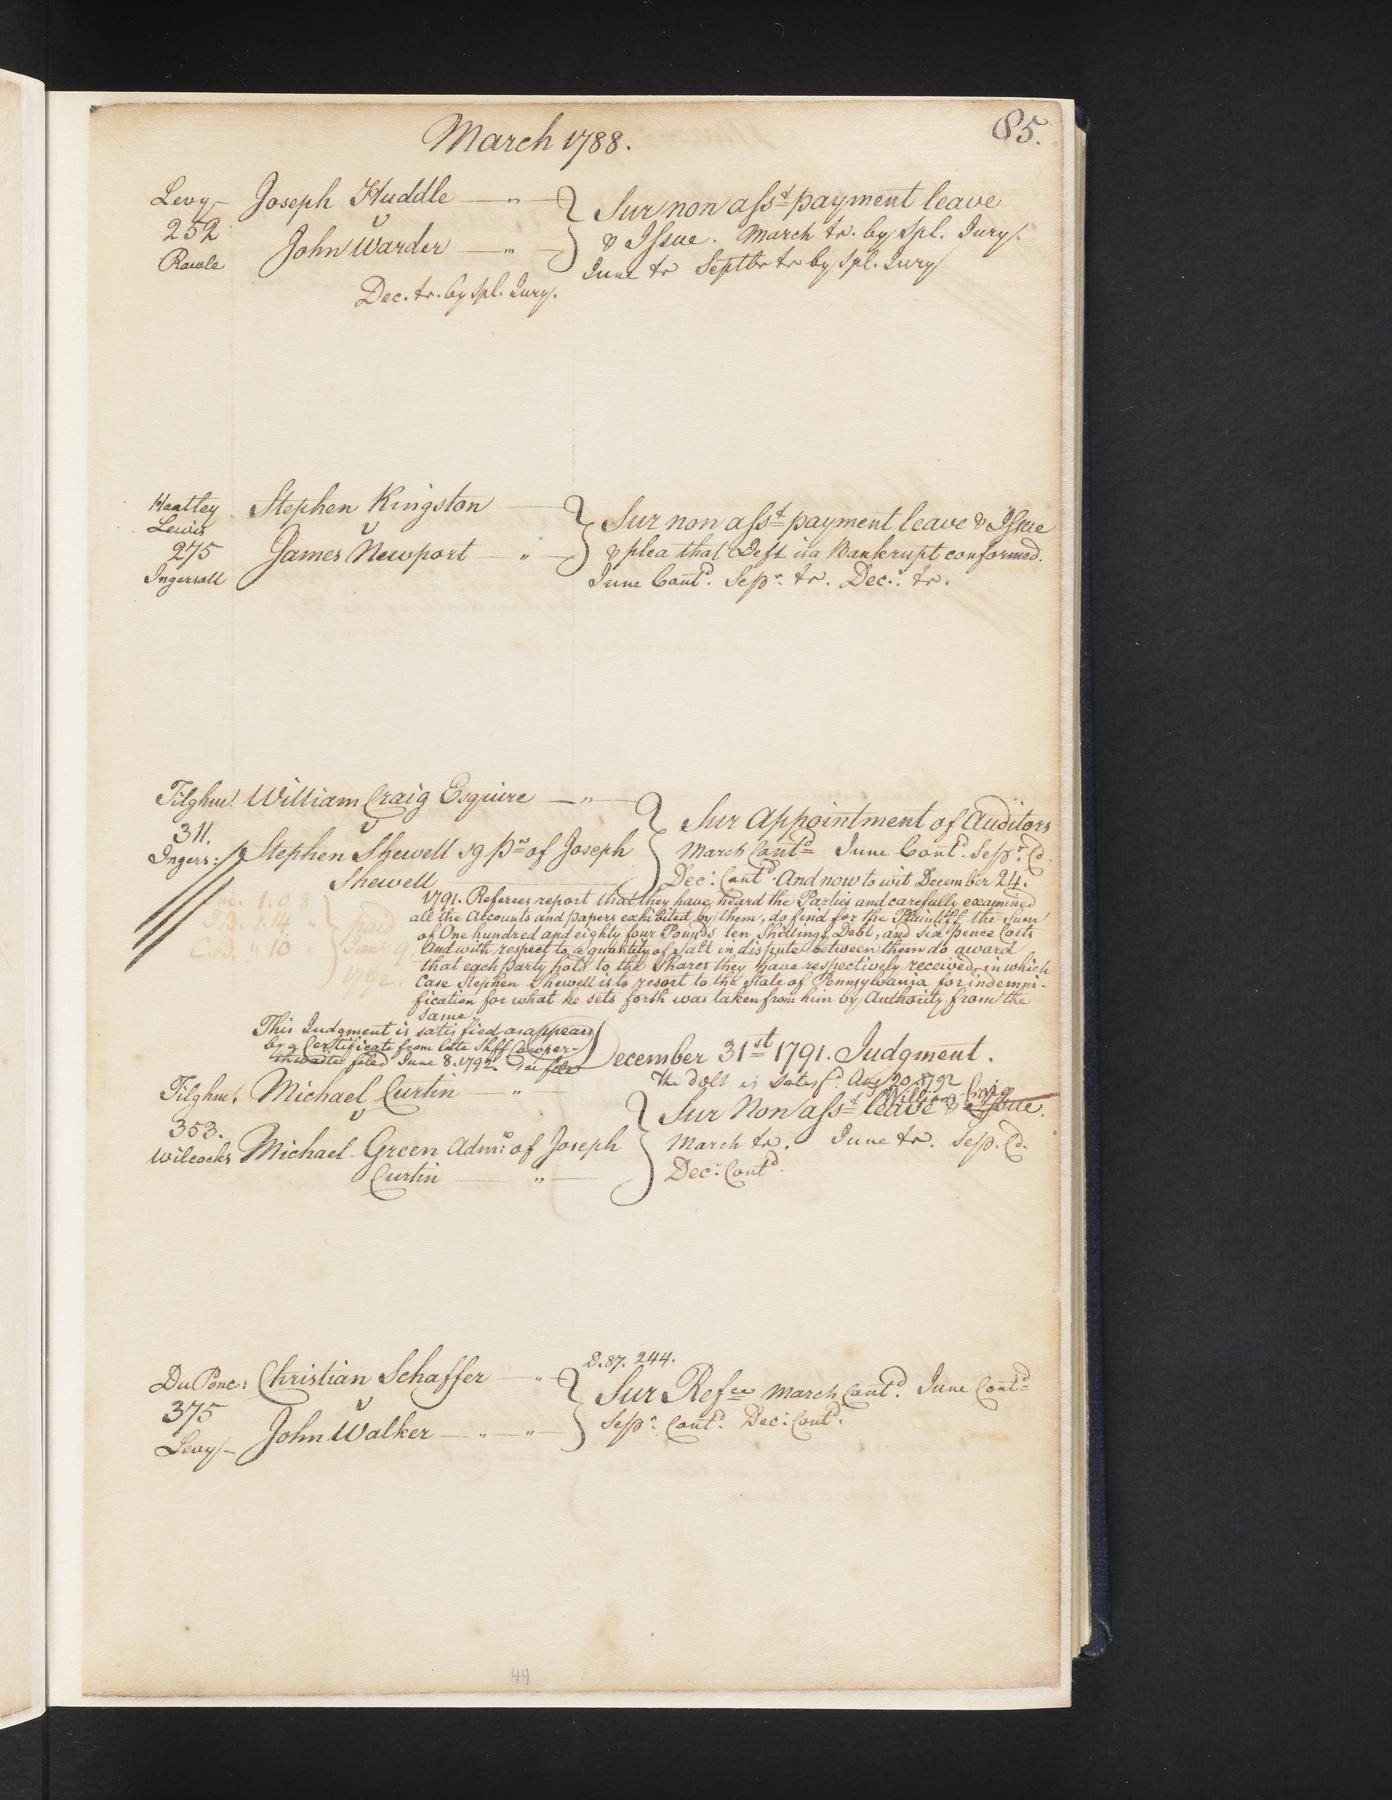 March 1788.
85.
Levy Joseph Huddle — " — Sur non asst payment leave
252 v & Issue. March tr. by Spl. Jury.
Rawle John Warder — " — June tr Septbr tr by Spl. Jury
Dec. tr. by Spl. Jury.
Heatley Stephen Kingston
Lewis v Sur non asst payment leave & Issue
275 James Newport — " — & plea that Deft is a Bankrupt conformed.
Ingersoll June Contd. Sepr. tr. Decr. tr.
Tilghm. William Craig Esquire — " — Sur Appointment of Auditors
311. v
Ingers: Stephen Shewell sg pr of Joseph March Contd June Contd. Sepr. Cd.
Shewell Dec: Contd. And now to wit December 24.
1791. Referees report that they have heard the Parties and carefully examined
all the Accounts and papers exhibited by them, do find for the Plaintiff the sum
of One hundred and eighty four Pounds ten Shillings Debt, and six pence Costs
And with respect to a quantity of Salt in dispute between them do award
that each party hold to the Shares they have respectively received, in which
Case Stephen Shewell is to resort to the State of Pennsylvania for indemni-
fication for what he sets forth was taken from him by Authority from the
same.
1.0 8
I.B. 1.14 " paid
C.B. " 10 Jany 9.
1792.
This Judgment is satisfied as appears
by a Certificate from late Shff Cowper-
thwaite filed June 8. 1792.
December 31st 1791. Judgment.
The debt is satisfd. Aug 20. 1792
William Craig
Tilghm. Michael Curtin — " Sur Non asst leave & Issue.
353. v
Wilcocks Michael Green Admr of Joseph March tr. June tr. Sep. Cd.
Curtin — " — Dec: Contd.
D. 87. 244.
Du Ponc: Christian Schaffer — " Sur Refce March Contd. June Contd
375 v Sepr. Contd. Dec: Contd.
Levy John Walker — " — " —
49